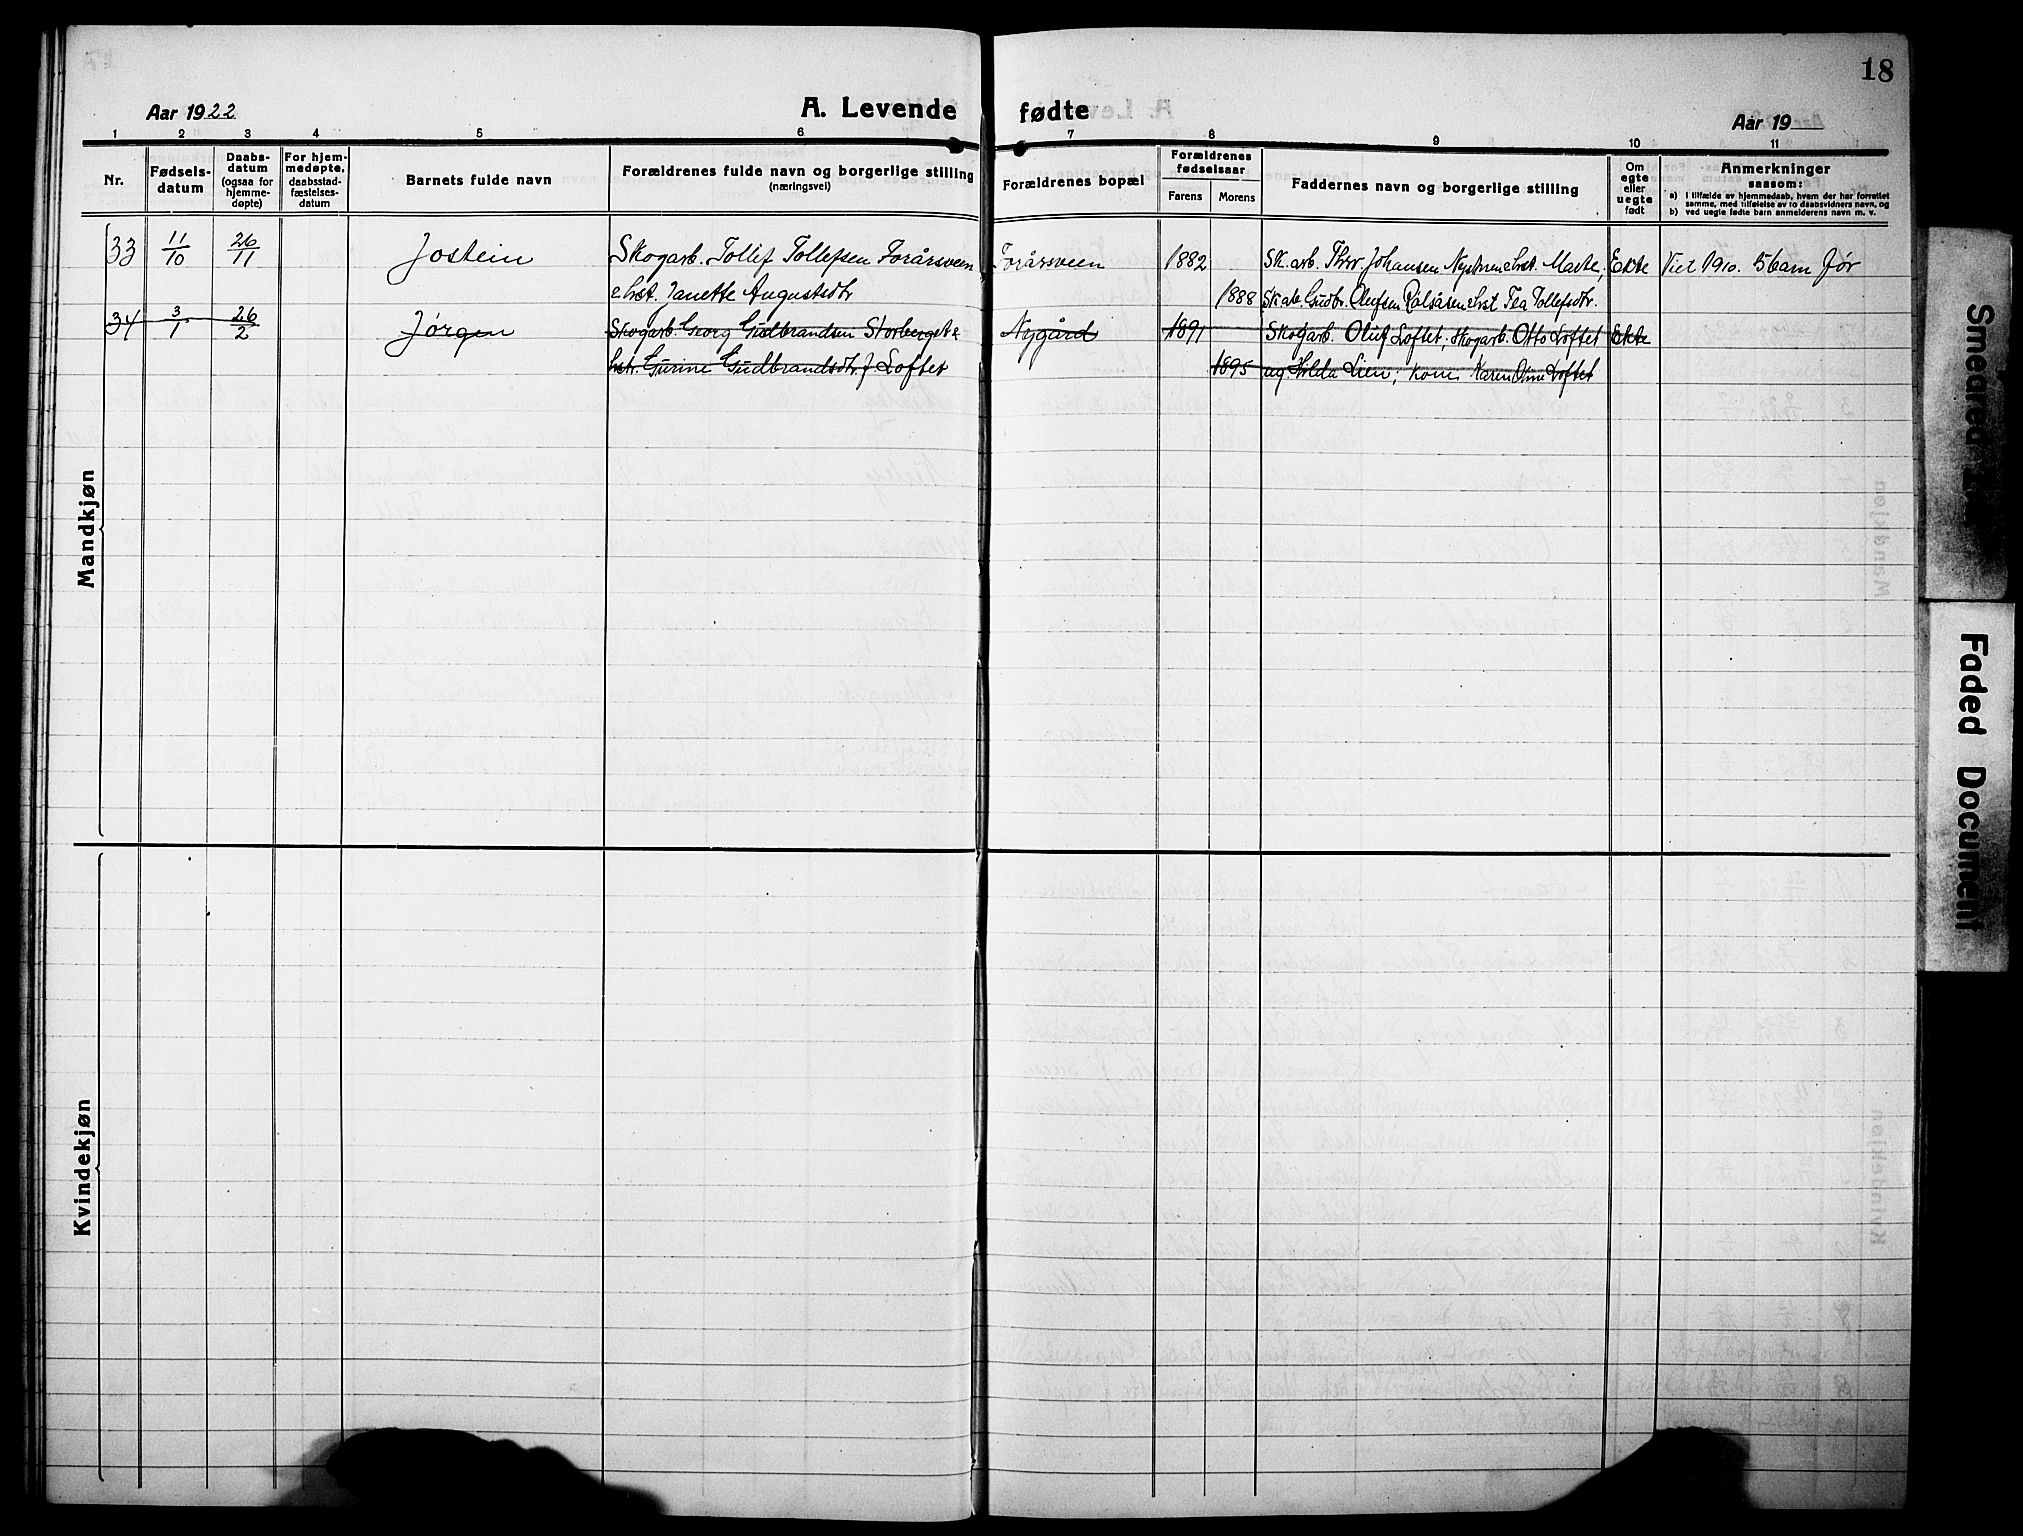 18
Aar 1922
A. Levende fødte
Aar 19
1 2 3 4 5 6 7 8 9 10 11
Nr.
Fødselsdatum
Daabsdatum (ogsaa for hjemmedøpte)
For hjemmedøpte, daabsstadfæstelsesdatum
Barnets fulde navn
Forældrenes fulde navn og borgerlige stilling (næringsvei)
Forældrenes bopæl
Forældrenes fødselsaar
Farens
Morens
Faddernes navn og borgerlige stilling
Om egte eller uegte født
Anmerkninger saasom:
a) I tilfælde av hjemmedaab, hvem der har forrettet samme, med tilføielse av to daabsvidners navn, og
b) ved uegte fødte barn anmelderens navn m. v.
Mandkjøn
33 11/10 26/11 Jostein Skogarb. Tollef Tollefsen Forårsveen Forårsveen 1882 Sk.arb. Johansen Marte, Ekte Viet 1910. 5 barn før
Janette Augustsdtr 1888 Gudbr. Olufsen Tea Tollefsdtr.
34 3/1 26/2 Jørgen Skogarb. Georg Gudbrandsen Storberget & Nygård 1891 Skogarb. Oluf Loftet; skogarb. Otto Loftet Ekte
hstr. Gurine Gudbrandsdtr. f Loftet 1895 ug Hilda Lien; kone Karen Oline Loftet
Kvindekjøn
Smeared
Faded Document